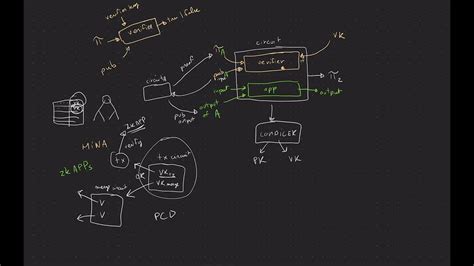 verifier key
verifier
true/false
π
pub
circuit
VK
πA
proof
verifier
circuit A
pub input
π2
input
app
output
output of A
pub output
COMPILER
PK
VK
zkAPP
MINA
verify
tx
tx circuit
zkAPPs
OR
VK tx
VK merge
merge circuit
V
V
PCD